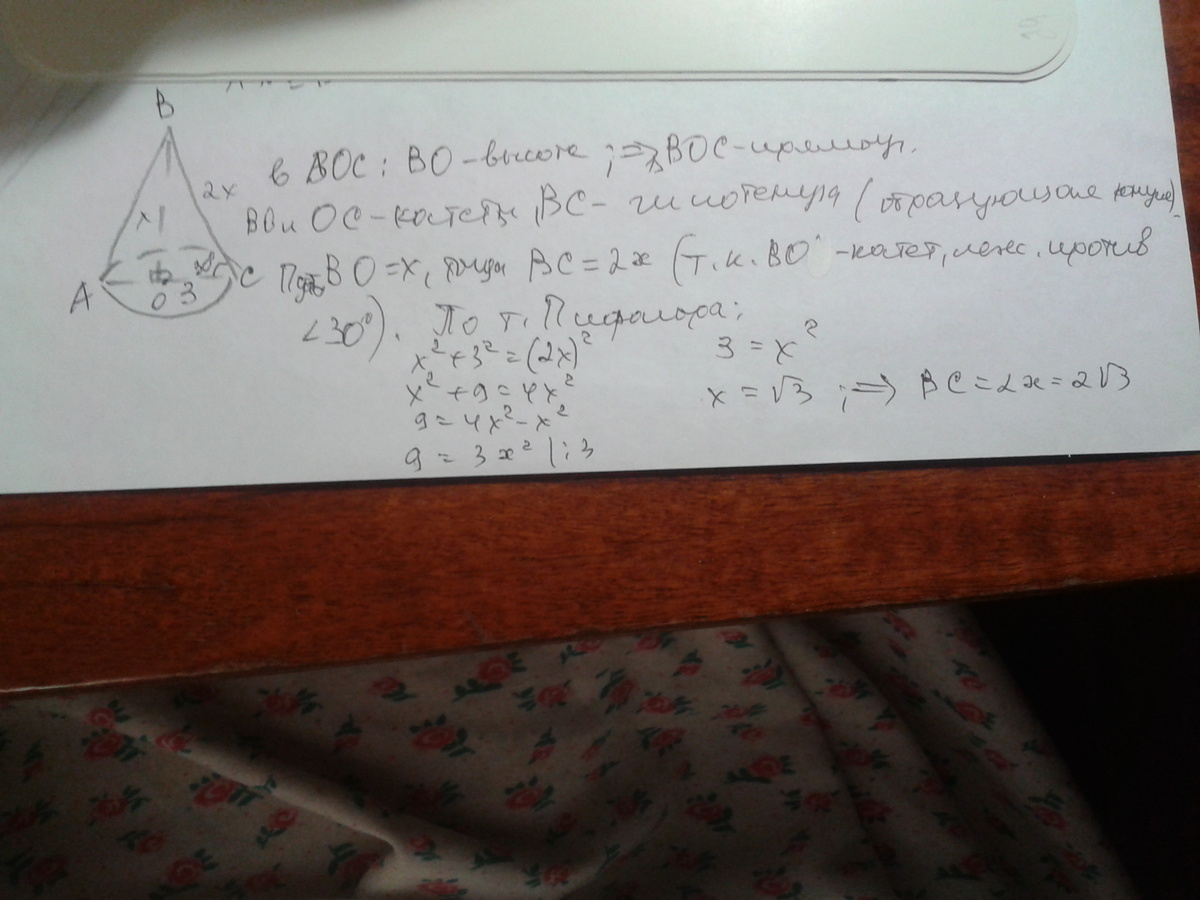 B
2x
x
A
O 3
C
в BOC: BO-высота ;⇒ BOC-прямоуг.
BO и OC-катеты, BC- гипотенуза (образующая конуса).
Пусть BO=x, тогда BC=2x (т.к. BO -катет, леж. против
<30°). По т. Пифагора:
x²+3²=(2x)²
x²+9=4x²
9=4x²-x²
9=3x² |:3
3=x²
x=√3 ;⇒ BC=2x=2√3